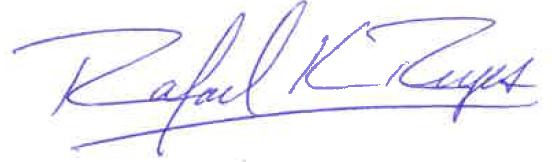 Rafael K Reyes